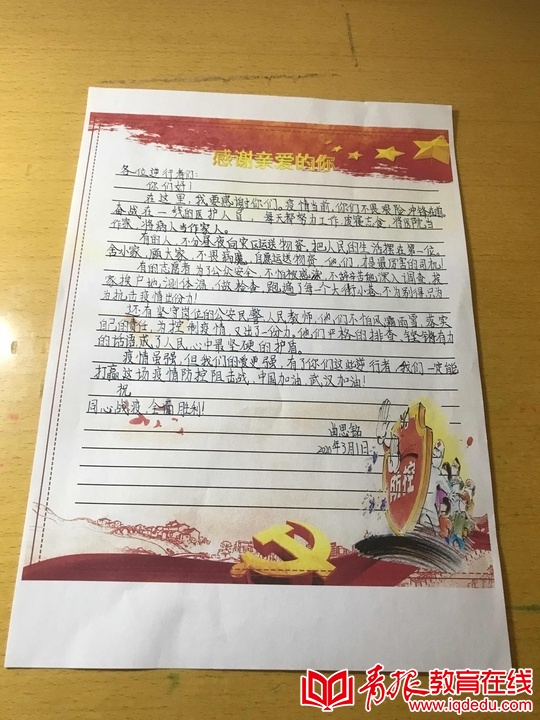 感谢亲爱的你
各位逆行者们:
你们好!
在这里,我要感谢你们。疫情当前,你们不畏艰险冲锋在前
奋战在一线的医护人员,每天都努力工作,废寝忘食,将医院当
作家,将病人当作家人。
有的人,不分昼夜向灾区运送物资,把人民的生活摆在第一位。
舍小家,顾大家,不畏病魔,自愿运送物资,他们,才是最厉害的司机!
有的志愿者,为了公众安全,不怕被感染,不辞辛苦地深入调查,挨
家挨户地,测体温,做检查,跑遍了每个大街小巷,不为别的,只为
为抗击疫情出份力!
还有坚守岗位的公安民警,人民教师,他们不怕风霜雨雪,落实
自己的责任,为控制疫情,又出了一份力。他们严格的排查,铿锵有力
的话语成了人民心中最坚硬的护盾。
疫情虽强,但我们的爱更强,有了你们这些逆行者,我们一定能
打赢这场疫情防控阻击战,中国加油,武汉加油!
祝
同心战疫,全面胜利!
曲思铭
2020年3月1日
防控
青报教育在线
www.iqdedu.com